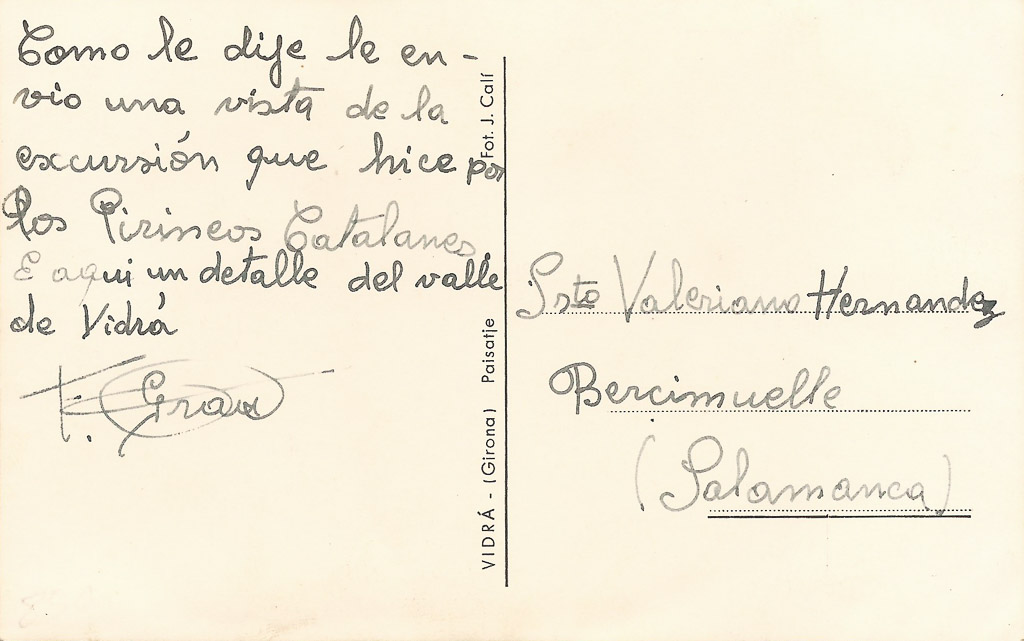 Como le dije le en-
vio una vista de la
excursión que hice por
los Pirineos Catalanes
E aqui un detalle del valle
de Vidrá
F. Grau
VIDRÁ - (Girona) Paisatje Fot. J. Calí
Valeriano Hernandez
Bercimuelle
(Salamanca)